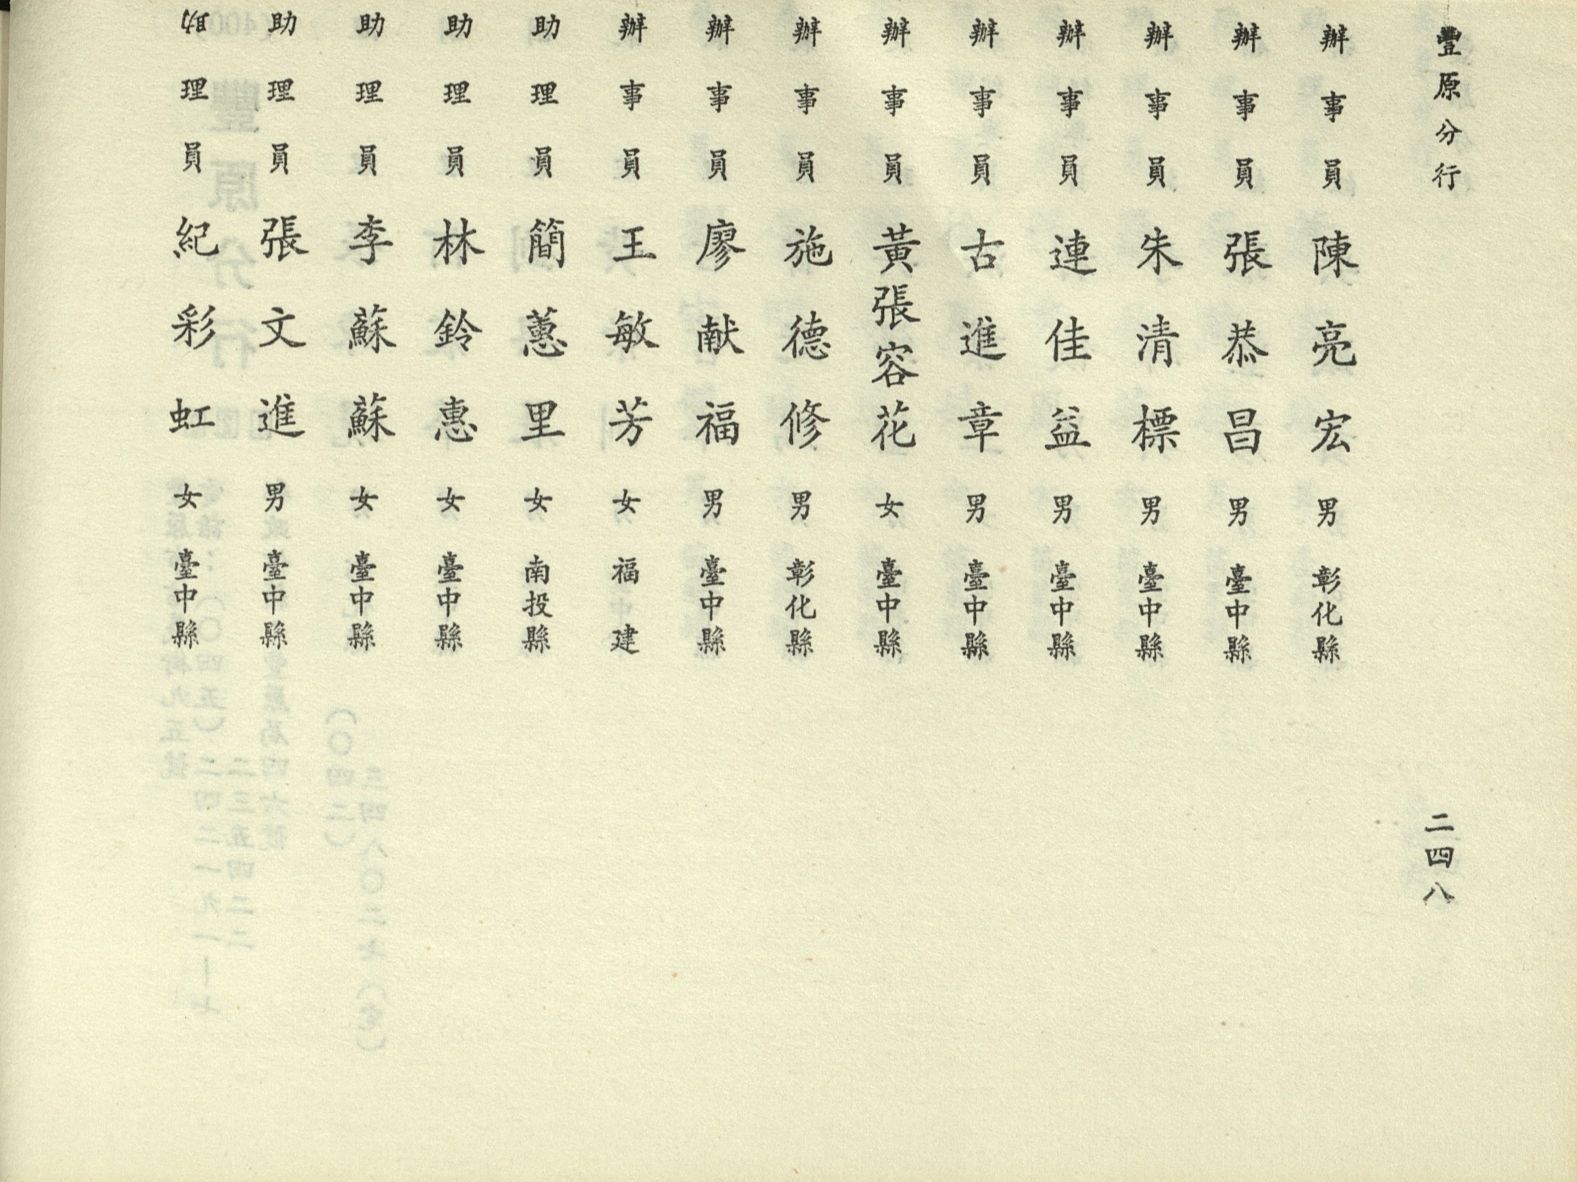 豐原分行
二四八
辦事員 陳亮宏 男 彰化縣
辦事員 張恭昌 男 臺中縣
辦事員 朱清標 男 臺中縣
辦事員 連佳益 男 臺中縣
辦事員 古進章 男 臺中縣
辦事員 黃張容花 女 臺中縣
辦事員 施德修 男 彰化縣
辦事員 廖献福 男 臺中縣
辦事員 王敏芳 女 福建
助理員 簡蕙里 女 南投縣
助理員 林鈴惠 女 臺中縣
助理員 李蘇蘇 女 臺中縣
助理員 張文進 男 臺中縣
助理員 紀彩虹 女 臺中縣